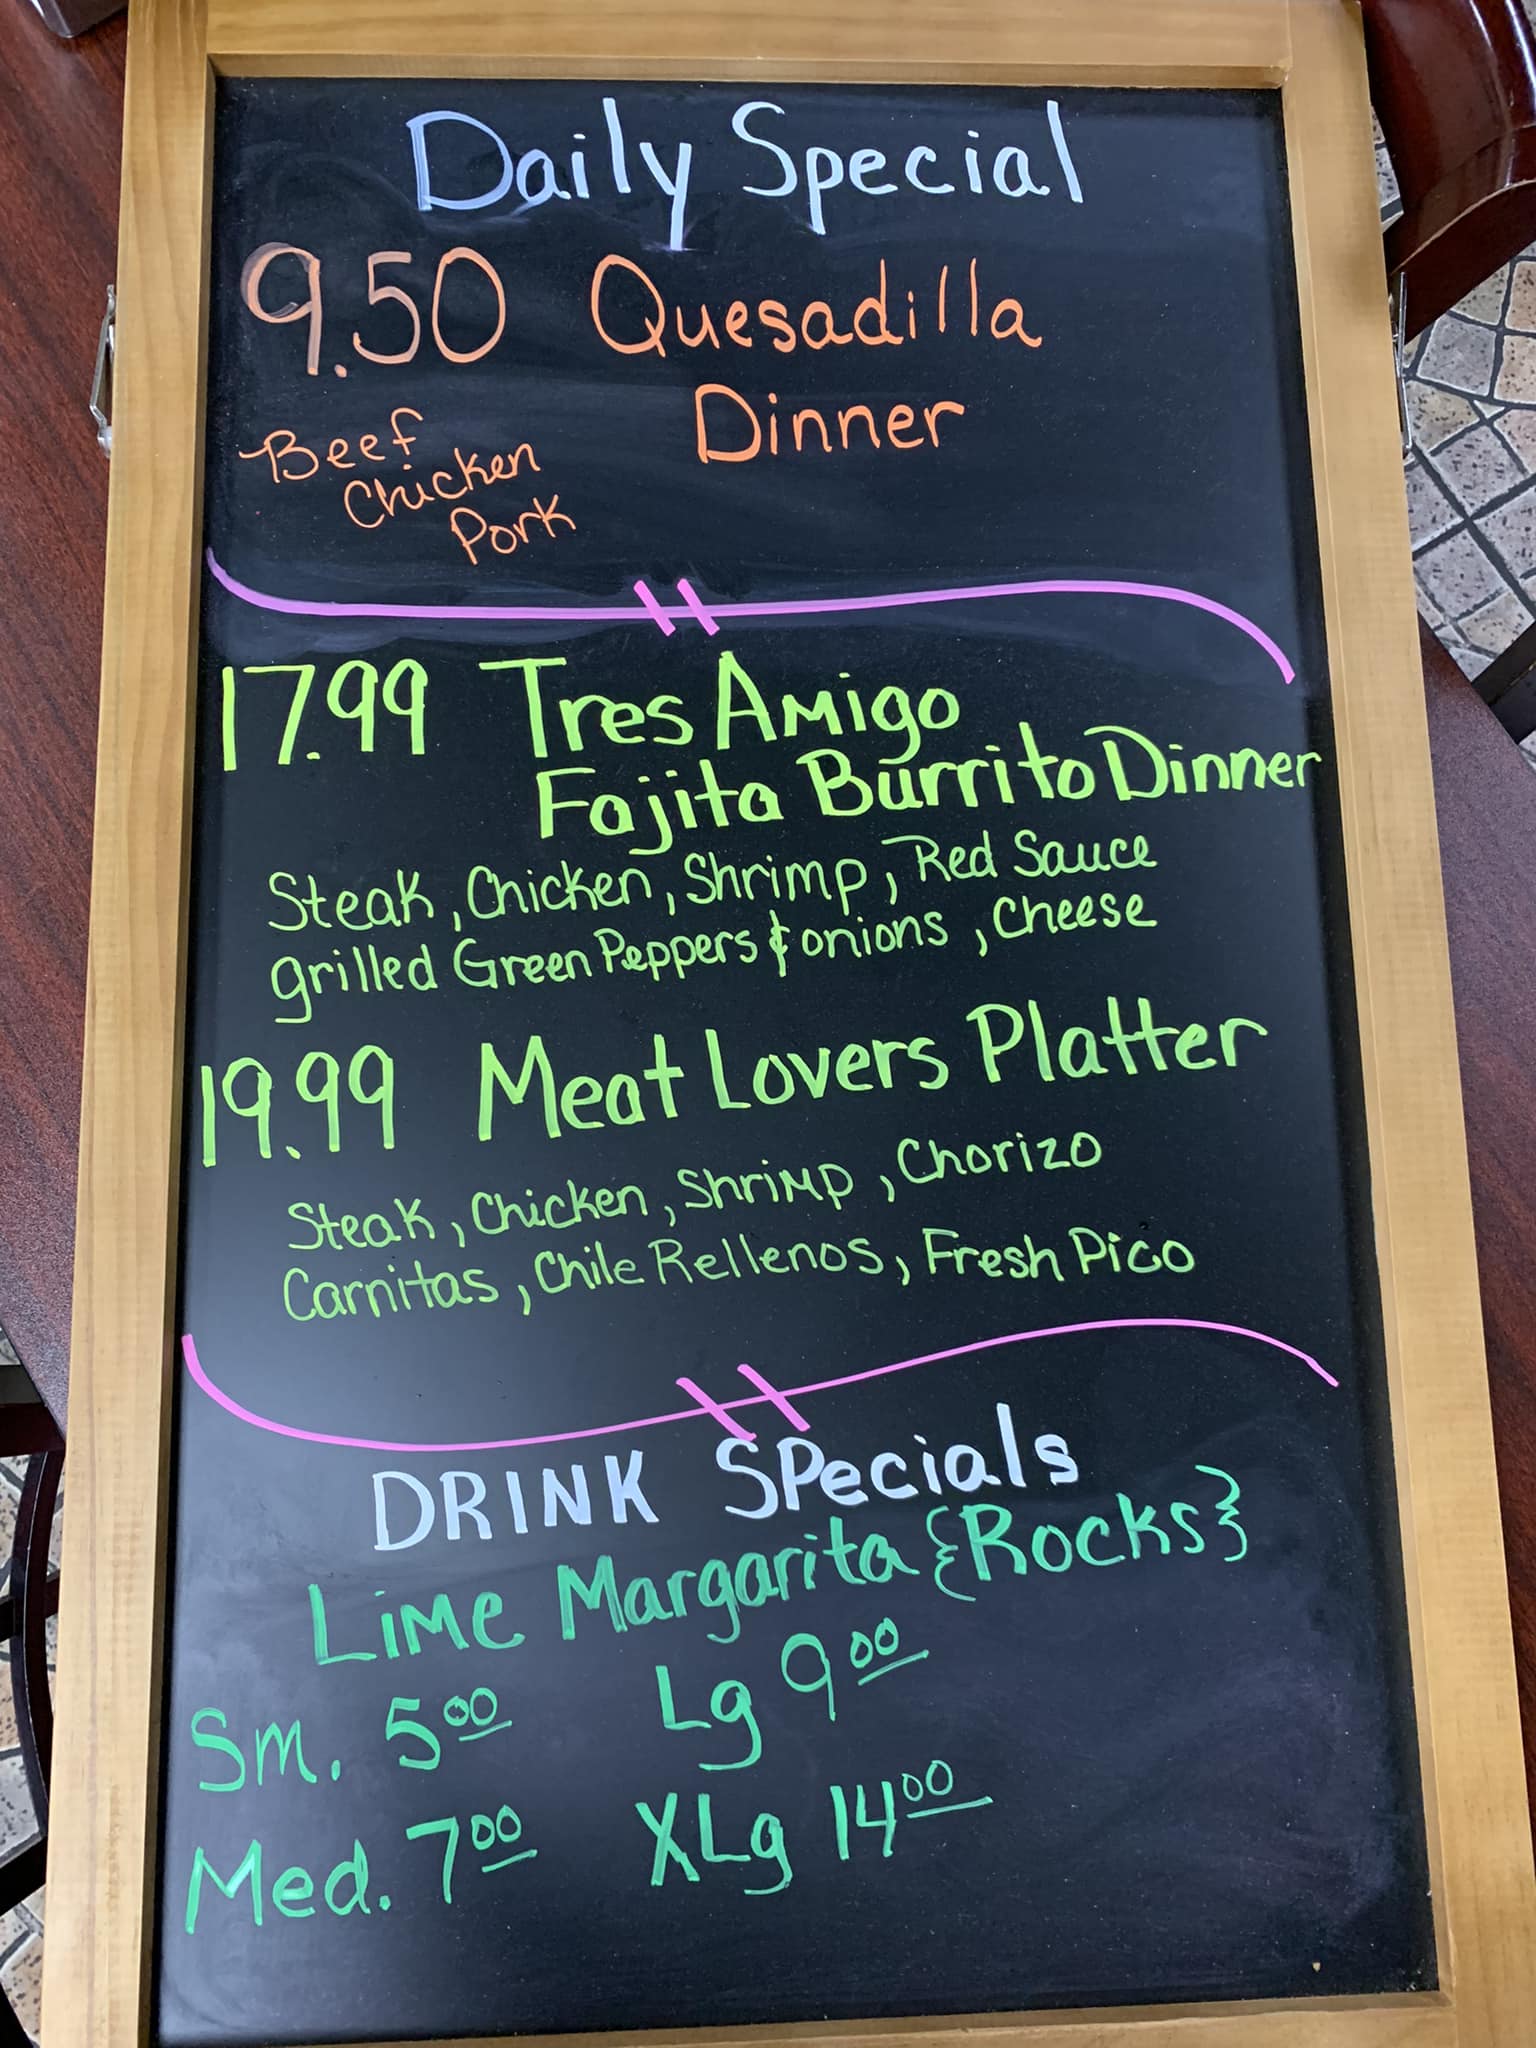 Daily Special
9.50 Quesadilla
Dinner
Beef
Chicken
Pork
17.99 Tres Amigo
Fajita Burrito Dinner
Steak, Chicken, Shrimp, Red Sauce
grilled Green Peppers & onions, cheese
19.99 Meat Lovers Platter
Steak, Chicken, Shrimp, Chorizo
Carnitas, Chile Rellenos, Fresh Pico
DRINK SPecials
Lime Margarita {Rocks}
Sm. 5.00 Lg 9.00
Med. 7.00 XLg 14.00